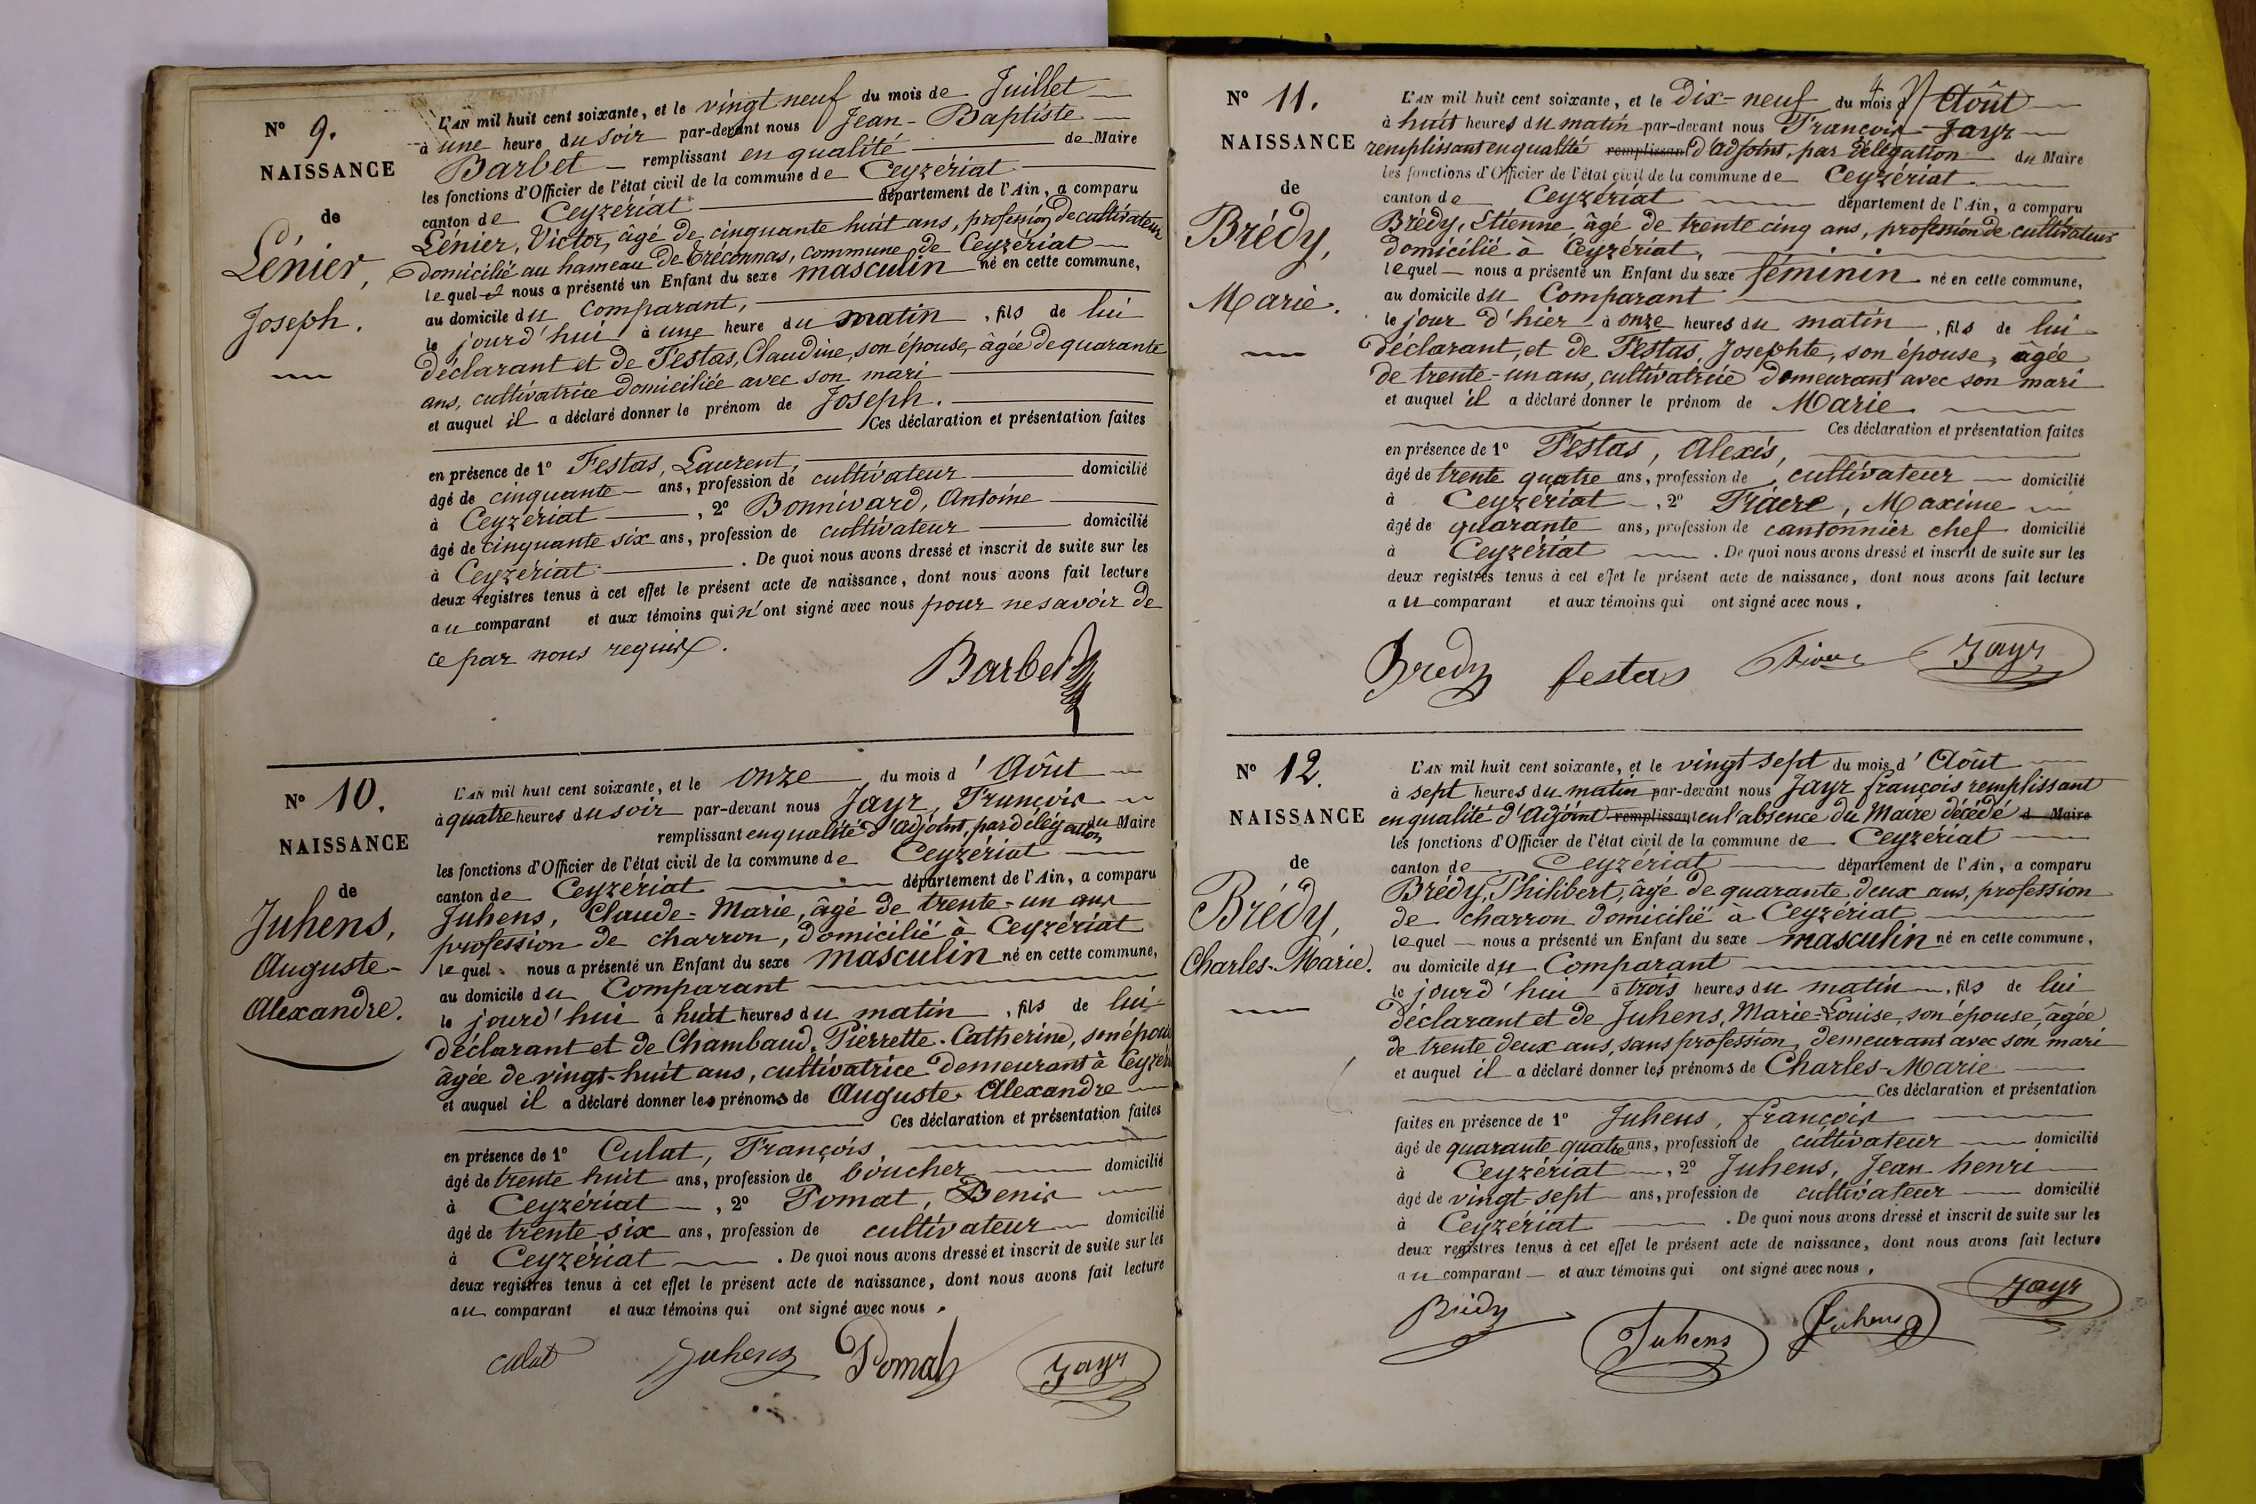 N° 9.
NAISSANCE
de
Lénier,
Joseph.
L'AN mil huit cent soixante, et le vingt neuf du mois de Juillet
à une heure du soir par-devant nous Jean-Baptiste
Barbet remplissant en qualité de Maire
les fonctions d'Officier de l'état civil de la commune de Ceyzériat
canton de Ceyzériat département de l'Ain, a comparu
Lénier, Victor, âgé de cinquante huit ans, profession de cultivateur
domicilié au hameau de Tréconnas, commune de Ceyzériat
lequel nous a présenté un Enfant du sexe masculin né en cette commune,
au domicile du Comparant,
le jourd'hui à une heure du matin, fils de lui
déclarant et de Festas, Claudine, son épouse, âgée de quarante
ans, cultivatrice domiciliée avec son mari
et auquel il a déclaré donner le prénom de Joseph.
Ces déclaration et présentation faites
en présence de 1° Festas, Laurent,
âgé de cinquante ans, profession de cultivateur domicilié
à Ceyzériat, 2° Bonnivard, Antoine
âgé de cinquante six ans, profession de cultivateur domicilié
à Ceyzériat. De quoi nous avons dressé et inscrit de suite sur les
deux registres tenus à cet effet le présent acte de naissance, dont nous avons fait lecture
au comparant et aux témoins qui n'ont signé avec nous pour ne savoir de
ce par nous requis.
Barbet
N° 10.
NAISSANCE
de
Juhens,
Auguste-
Alexandre.
L'AN mil huit cent soixante, et le onze du mois d'Août
à quatre heures du soir par-devant nous Jayr, François
remplissant en qualité d'adjoint, par délégation du Maire
les fonctions d'Officier de l'état civil de la commune de Ceyzériat
canton de Ceyzériat département de l'Ain, a comparu
Juhens, Claude-Marie, âgé de trente-un ans
profession de charron, domicilié à Ceyzériat
lequel nous a présenté un Enfant du sexe masculin né en cette commune,
au domicile du Comparant
le jourd'hui à huit heures du matin, fils de lui
déclarant et de Chambaud, Pierrette-Catherine, son épouse
âgée de vingt-huit ans, cultivatrice demeurant à Ceyzéri
et auquel il a déclaré donner les prénoms de Auguste-Alexandre
Ces déclaration et présentation faites
en présence de 1° Culat, François
âgé de trente huit ans, profession de boucher domicilié
à Ceyzériat, 2° Pomat, Denis
âgé de trente-six ans, profession de cultivateur domicilié
à Ceyzériat. De quoi nous avons dressé et inscrit de suite sur les
deux registres tenus à cet effet le présent acte de naissance, dont nous avons fait lecture
au comparant et aux témoins qui ont signé avec nous.
culat Juhens Pomat Jayr
N° 11.
NAISSANCE
de
Brédy,
Marie.
L'AN mil huit cent soixante, et le Dix-neuf du mois d'Août
à huit heures du matin par-devant nous François Jayr
remplissant en qualité remplissant d'adjoint, par délégation du Maire
les fonctions d'Officier de l'état civil de la commune de Ceyzériat
canton de Ceyzériat département de l'Ain, a comparu
Brédy, Etienne âgé de trente cinq ans, profession de cultivateur
domicilié à Ceyzériat,
lequel nous a présenté un Enfant du sexe féminin né en cette commune,
au domicile du Comparant
le jour d'hier à onze heures du matin, fils de lui
déclarant, et de Festas, Josephte, son épouse, âgée
de trente-un ans, cultivatrice demeurant avec son mari
et auquel il a déclaré donner le prénom de Marie
Ces déclaration et présentation faites
en présence de 1° Festas, Alexis,
âgé de trente quatre ans, profession de cultivateur domicilié
à Ceyzériat, 2° Fiacre, Maxime
âgé de quarante ans, profession de cantonnier chef domicilié
à Ceyzériat. De quoi nous avons dressé et inscrit de suite sur les
deux registres tenus à cet effet le présent acte de naissance, dont nous avons fait lecture
au comparant et aux témoins qui ont signé avec nous.
Bredy festas Jayr
N° 12.
NAISSANCE
de
Brédy,
Charles-Marie.
L'AN mil huit cent soixante, et le vingt sept du mois d'Août
à sept heures du matin par-devant nous Jayr françois remplissant
en qualité d'Adjoint remplissant en l'absence du Maire décédé d Maire
les fonctions d'Officier de l'état civil de la commune de Ceyzériat
canton de Ceyzériat département de l'Ain, a comparu
Brédy, Philibert, âgé de quarante deux ans, profession
de charron domicilié à Ceyzériat
lequel nous a présenté un Enfant du sexe masculin né en cette commune,
au domicile du Comparant
le jourd'hui à trois heures du matin, fils de lui
déclarant et de Juhens, Marie-Louise, son épouse, âgée
de trente deux ans, sans profession, demeurant avec son mari
et auquel il a déclaré donner les prénoms de Charles-Marie
Ces déclaration et présentation
faites en présence de 1° Juhens, françois
âgé de quarante quatre ans, profession de cultivateur domicilié
à Ceyzériat, 2° Juhens, Jean henri
âgé de vingt-sept ans, profession de cultivateur domicilié
à Ceyzériat. De quoi nous avons dressé et inscrit de suite sur les
deux registres tenus à cet effet le présent acte de naissance, dont nous avons fait lecture
au comparant et aux témoins qui ont signé avec nous.
Brédy Juhens Juhens Jayr